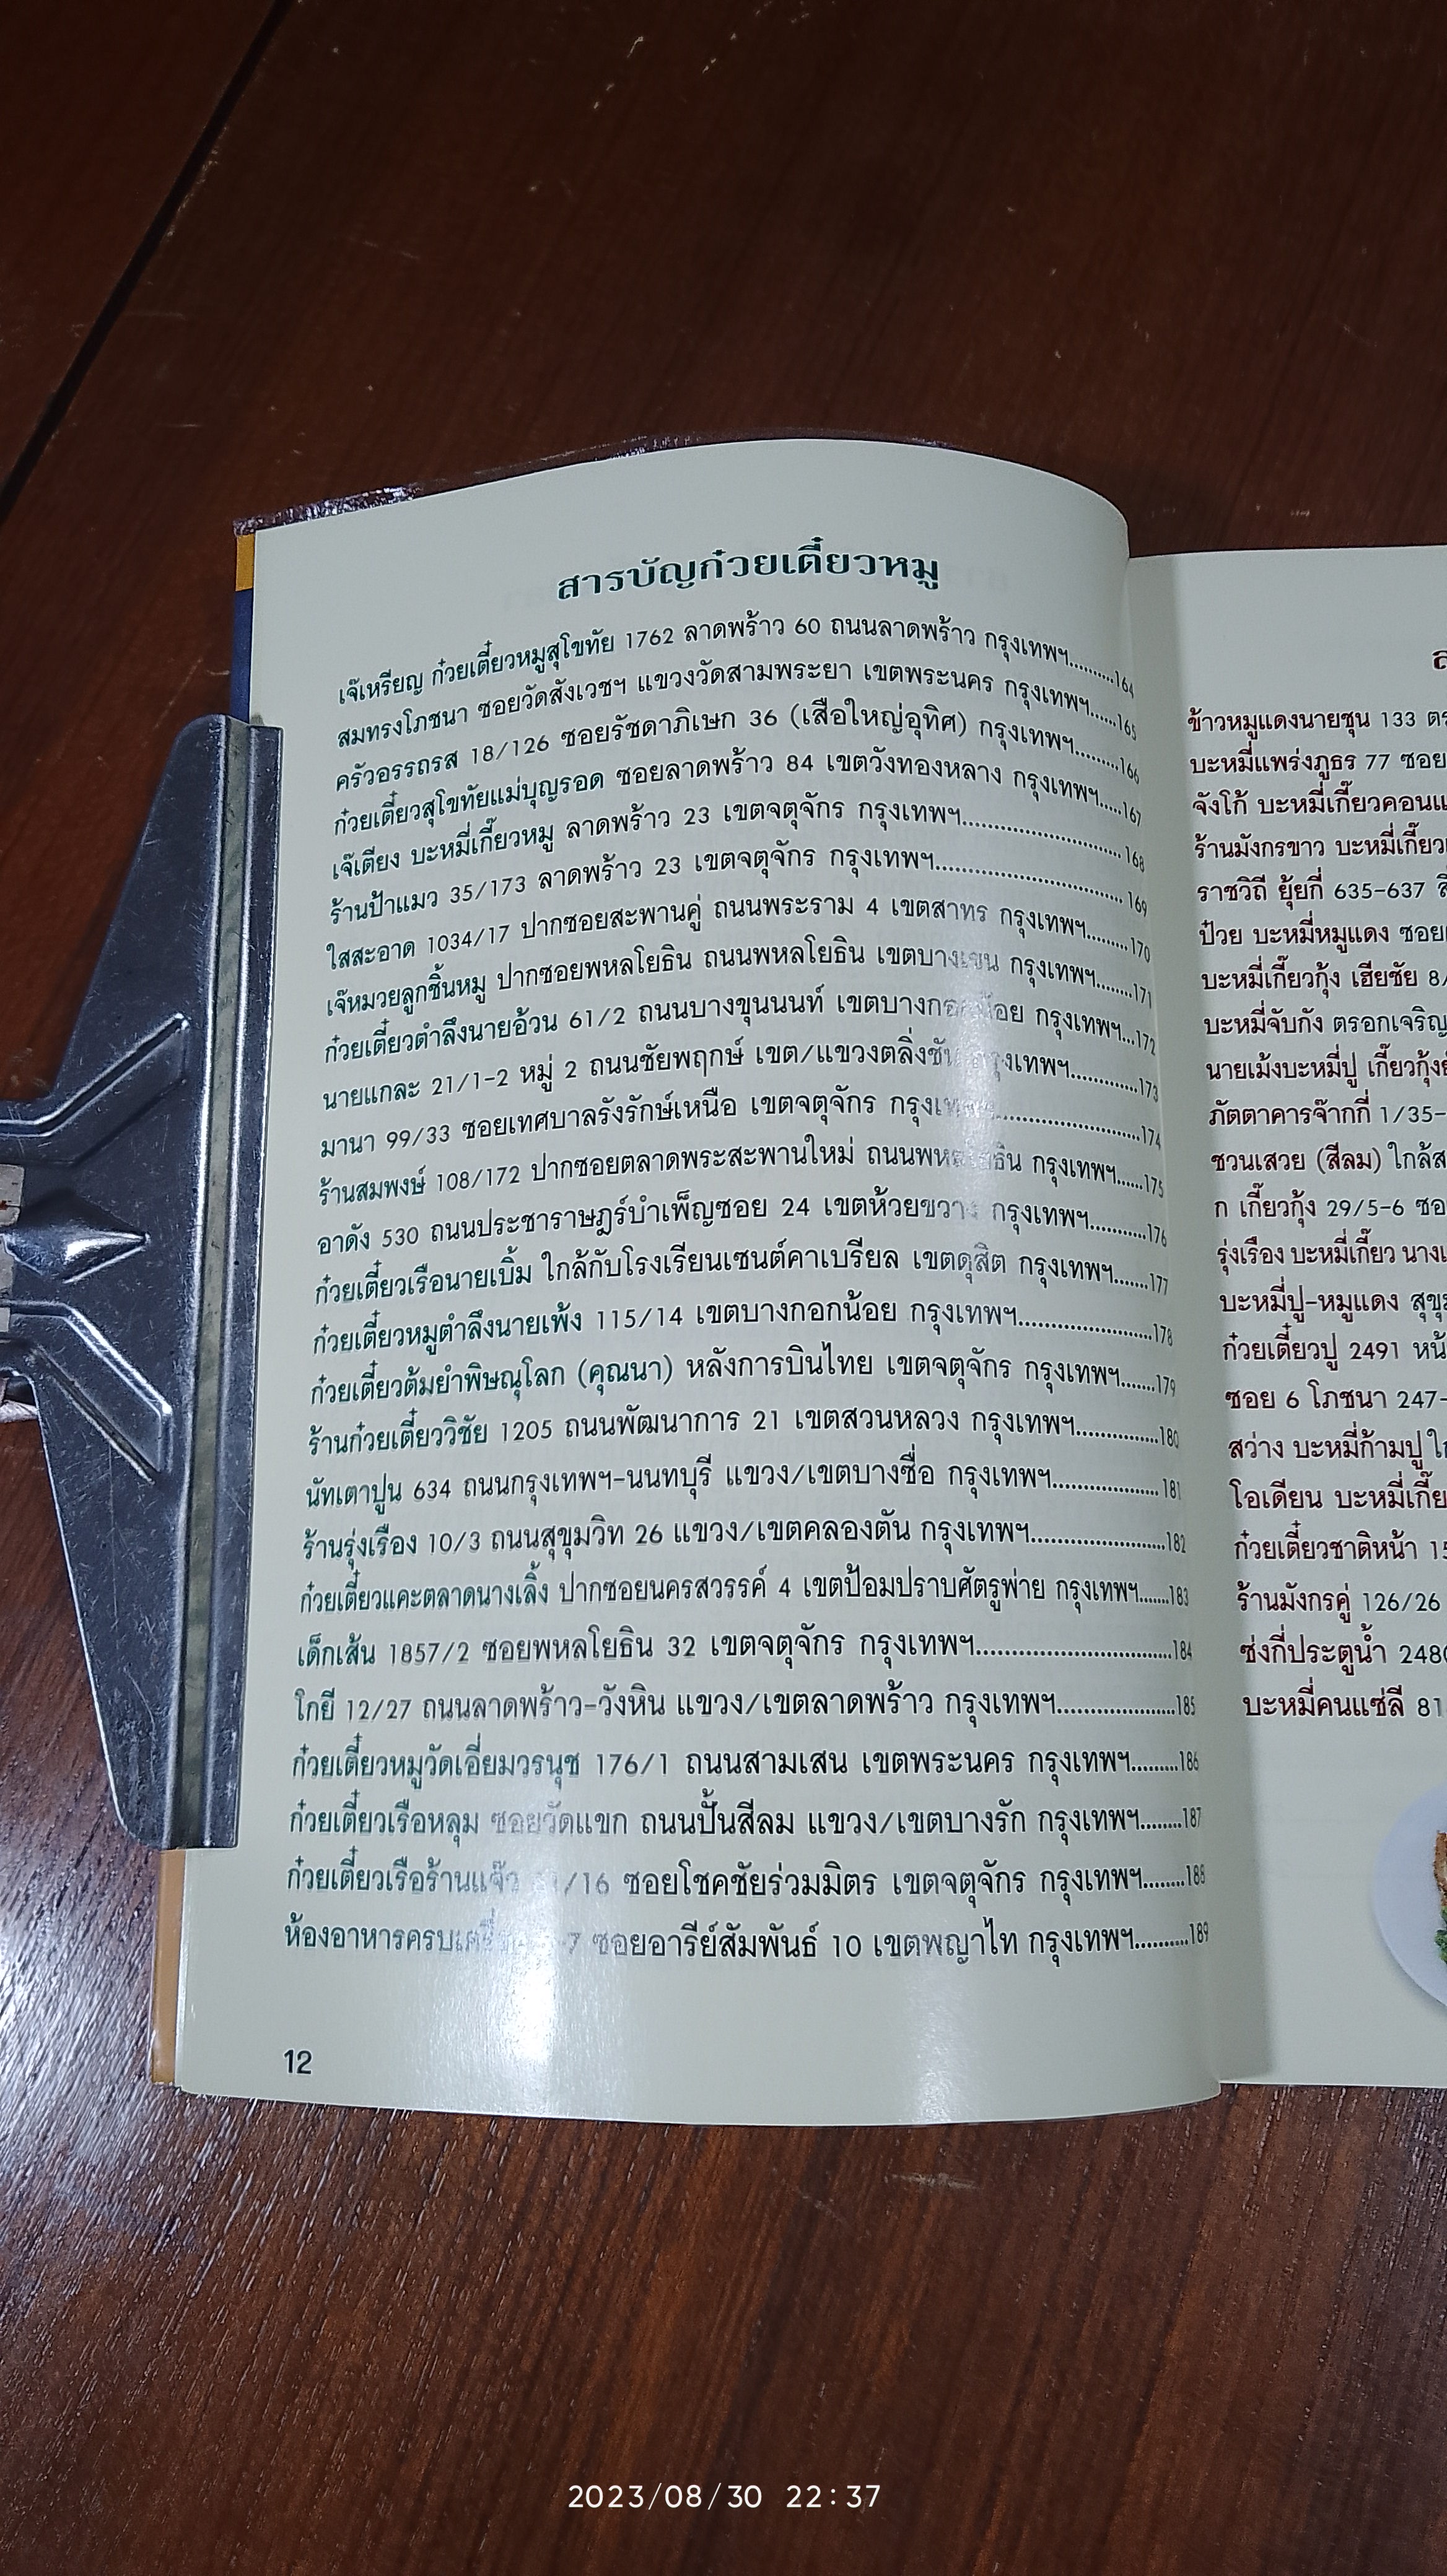 สารบัญก๋วยเตี๋ยวหมู
เจ๊เหรียญ ก๋วยเตี๋ยวหมูสุโขทัย 1762 ลาดพร้าว 60 ถนนลาดพร้าว กรุงเทพฯ.........164
สมทรงโภชนา ซอยวัดสังเวชฯ แขวงวัดสามพระยา เขตพระนคร กรุงเทพฯ......165
ครัวอรรถรส 18/126 ซอยรัชดาภิเษก 36 (เสือใหญ่อุทิศ) กรุงเทพฯ.........166
ก๋วยเตี๋ยวสุโขทัยแม่บุญรอด ซอยลาดพร้าว 84 เขตวังทองหลาง กรุงเทพฯ.....167
เจ๊เตียง บะหมี่เกี๊ยวหมู ลาดพร้าว 23 เขตจตุจักร กรุงเทพฯ..............................168
ร้านป้าแมว 35/173 ลาดพร้าว 23 เขตจตุจักร กรุงเทพฯ..................................169
ใสสะอาด 1034/17 ปากซอยสะพานคู่ ถนนพระราม 4 เขตสาทร กรุงเทพฯ........170
เจ๊หมวยลูกชิ้นหมู ปากซอยพหลโยธิน ถนนพหลโยธิน เขตบางเขน กรุงเทพฯ........171
ก๋วยเตี๋ยวตำลึงนายอ้วน 61/2 ถนนบางขุนนนท์ เขตบางกอกน้อย กรุงเทพฯ...172
นายแกละ 21/1-2 หมู่ 2 ถนนชัยพฤกษ์ เขต/แขวงตลิ่งชัน กรุงเทพฯ.............173
มานา 99/33 ซอยเทศบาลรังรักษ์เหนือ เขตจตุจักร กรุงเทพฯ..........................174
ร้านสมพงษ์ 108/172 ปากซอยตลาดพระสะพานใหม่ ถนนพหลโยธิน กรุงเทพฯ......175
อาดัง 530 ถนนประชาราษฎร์บำเพ็ญซอย 24 เขตห้วยขวาง กรุงเทพฯ..........176
ก๋วยเตี๋ยวเรือนายเบิ้ม ใกล้กับโรงเรียนเซนต์คาเบรียล เขตดุสิต กรุงเทพฯ.......177
ก๋วยเตี๋ยวหมูตำลึงนายเพ้ง 115/14 เขตบางกอกน้อย กรุงเทพฯ.......................178
ก๋วยเตี๋ยวต้มยำพิษณุโลก (คุณนา) หลังการบินไทย เขตจตุจักร กรุงเทพฯ.......179
ร้านก๋วยเตี๋ยววิชัย 1205 ถนนพัฒนาการ 21 เขตสวนหลวง กรุงเทพฯ..............180
นัทเตาปูน 634 ถนนกรุงเทพฯ-นนทบุรี แขวง/เขตบางซื่อ กรุงเทพฯ..................181
ร้านรุ่งเรือง 10/3 ถนนสุขุมวิท 26 แขวง/เขตคลองตัน กรุงเทพฯ.......................182
ก๋วยเตี๋ยวแคะตลาดนางเลิ้ง ปากซอยนครสวรรค์ 4 เขตป้อมปราบศัตรูพ่าย กรุงเทพฯ.......183
เด็กเส้น 1857/2 ซอยพหลโยธิน 32 เขตจตุจักร กรุงเทพฯ.................................184
โกยี 12/27 ถนนลาดพร้าว-วังหิน แขวง/เขตลาดพร้าว กรุงเทพฯ....................185
ก๋วยเตี๋ยวหมูวัดเอี่ยมวรนุช 176/1 ถนนสามเสน เขตพระนคร กรุงเทพฯ.........186
ก๋วยเตี๋ยวเรือหลุม ซอยวัดแขก ถนนปั้นสีลม แขวง/เขตบางรัก กรุงเทพฯ........187
ก๋วยเตี๋ยวเรือร้านแจ๊ว ซอยโชคชัยร่วมมิตร เขตจตุจักร กรุงเทพฯ........188
ซอยอารีย์สัมพันธ์ 10 เขตพญาไท กรุงเทพฯ..........189
12
ข้าวหมูแดงนายชุน 133
บะหมี่แพร่งภูธร 77 ซอย
จังโก้ บะหมี่เกี๊ยวคอน
ร้านมังกรขาว บะหมี่เกี๊ยว
ราชวิถี ยุ้ยกี่ 635-637
ป๋วย บะหมี่หมูแดง ซอย
บะหมี่เกี๊ยวกุ้ง เฮียชัย 8/
บะหมี่จับกัง ตรอกเจริญ
นายเม้งบะหมี่ปู เกี๊ยวกุ้ง
ภัตตาคารจ๊ากกี่ 1/35-
ชวนเสวย (สีลม) ใกล้
ก เกี๊ยวกุ้ง 29/5-6
รุ่งเรือง บะหมี่เกี๊ยว
บะหมี่ปู-หมูแดง
ก๋วยเตี๋ยวปู 2491
ซอย 6 โภชนา 247-
สว่าง บะหมี่ก้ามปู
โอเดียน บะหมี่
ก๋วยเตี๋ยวชาติหน้า
ร้านมังกรคู่ 126/26
ซ่งกี่ประตูน้ำ
บะหมี่คนแซ่ลี 81
2023/08/30 22:37